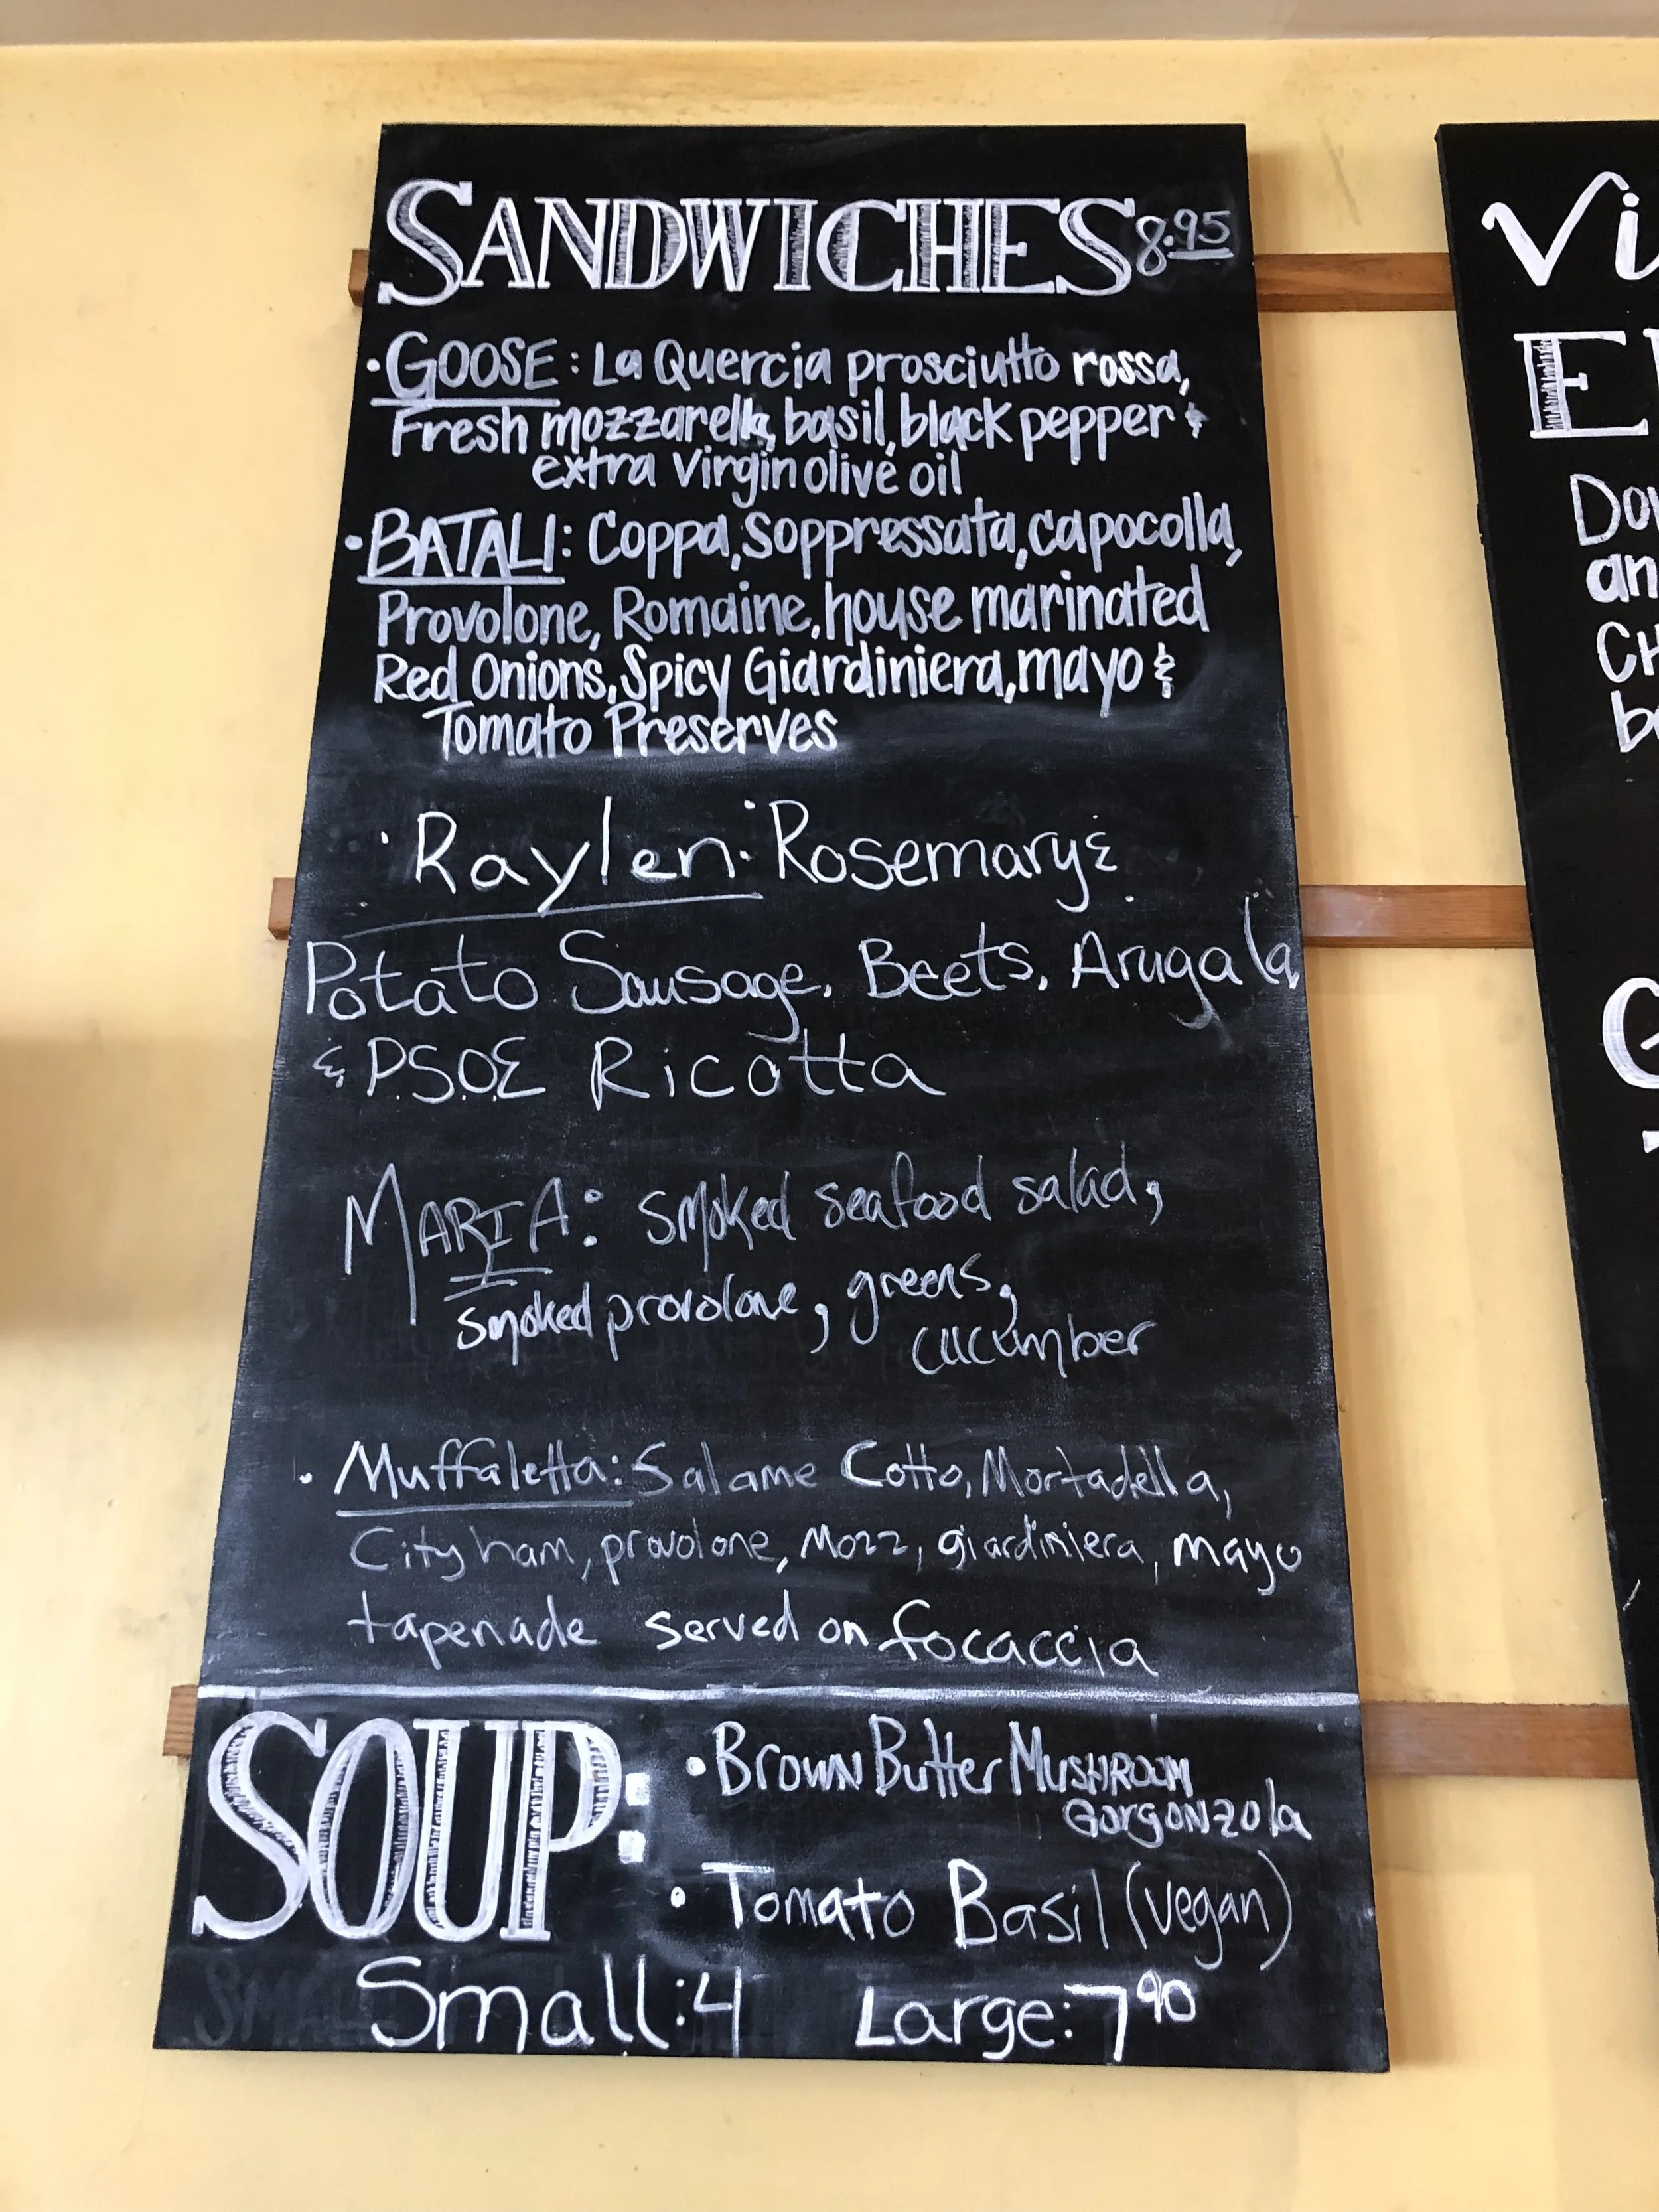 SANDWICHES 8.95
• GOOSE: La Quercia prosciutto rossa,
Fresh mozzarella, basil, black pepper &
extra virgin olive oil
• BATALI: Coppa, Soppressata, capocolla,
Provolone, Romaine, house marinated
Red Onions, Spicy Giardiniera, mayo &
Tomato Preserves
• Raylen: Rosemary &
Potato Sausage, Beets, Arugala,
& P.S.O.E Ricotta
MARIA: smoked seafood salad,
smoked provolone, greens,
cucumber
• Muffaletta: Salame Cotto, Mortadella,
City ham, provolone, Mozz, giardiniera, mayo
tapenade served on focaccia
SOUP:
• Brown Butter MUSHROOM
Gorgonzola
• Tomato Basil (vegan)
Small: 4 Large: 7 90
Vi
E
Dow
an
CH
be
G